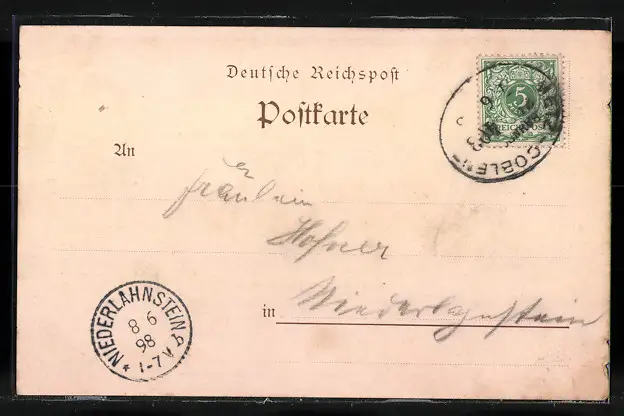 Deutsche Reichspost
Postkarte
5
REICHSPOST
COBLENZ
An
Fräulein
Hofner
in Niederlahnstein
NIEDERLAHNSTEIN
8 6
98
* 1-7V